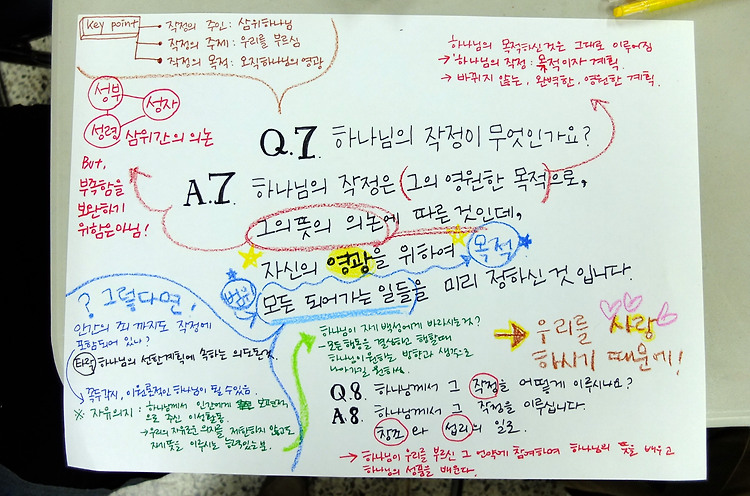 Key point
작정의 주인: 삼위하나님
작정의 주제: 우리를 부르심
작정의 목적: 오직하나님의 영광
하나님의 목적하신것은 그대로 이루어짐
→ 하나님의 작정: 목적이자 계획.
→ 바뀌지 않는, 완벽한, 영원한 계획.
성부
성자
성령
삼위간의 의논
But,
부족함을
보완하기
위함은아님!
Q.7. 하나님의 작정이 무엇인가요?
A.7. 하나님의 작정은 (그의 영원한 목적)으로,
그의 뜻의 의논에 따른 것인데,
자신의 영광을 위하여 목적
범위
모든 되어가는 일들을 미리 정하신 것 입니다.
? 그렇다면!
인간의 죄 까지도 작정에
포함되어 있나?
타락 하나님의 선한계획에 속하는 의도된것.
꼭두각시, 이원론적인 하나님이 될 수 있음.
※ 자유의지: 하나님께서 인간에게
으로 주신 이성활동.
→ 우리의 자유로운 의지를 제한하지 않고도
자기뜻을 이루시는 능력있는 분.
하나님이 자기 백성에게 바라시는것?
- 모든 행동을 결상하고 행할때
하나님이 원하는 방향과 생각으로
나아가길 원하심.
우리를 사랑
하시기 때문에!
Q.8. 하나님께서 그 작정을 어떻게 이루시나요?
A.8. 하나님께서 그 작정을 이루십니다.
창조와 섭리의 일로.
→ 하나님이 우리를 부르신 그 언약에 참여하여 하나님의 뜻을 배우고
하나님의 성품을 배운다.